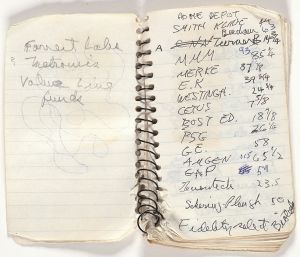 Forrest Labs
Medtronics
Value Line
funds
HOME DEPOT
SMITH KLINE
A
CNN Turner B
MMM 85 1/4
MERKE 37 1/8
E.K 39 3/4
WESTINGA. 24 3/4
CETUS 7 7/8
BOST ED. 18 7/8
PSG 26 1/4
G.E. 58
AMGEN 115 6.5 1/2
GAP 59
Genentech 23.5
Schering-Plough 50
Fidelity select